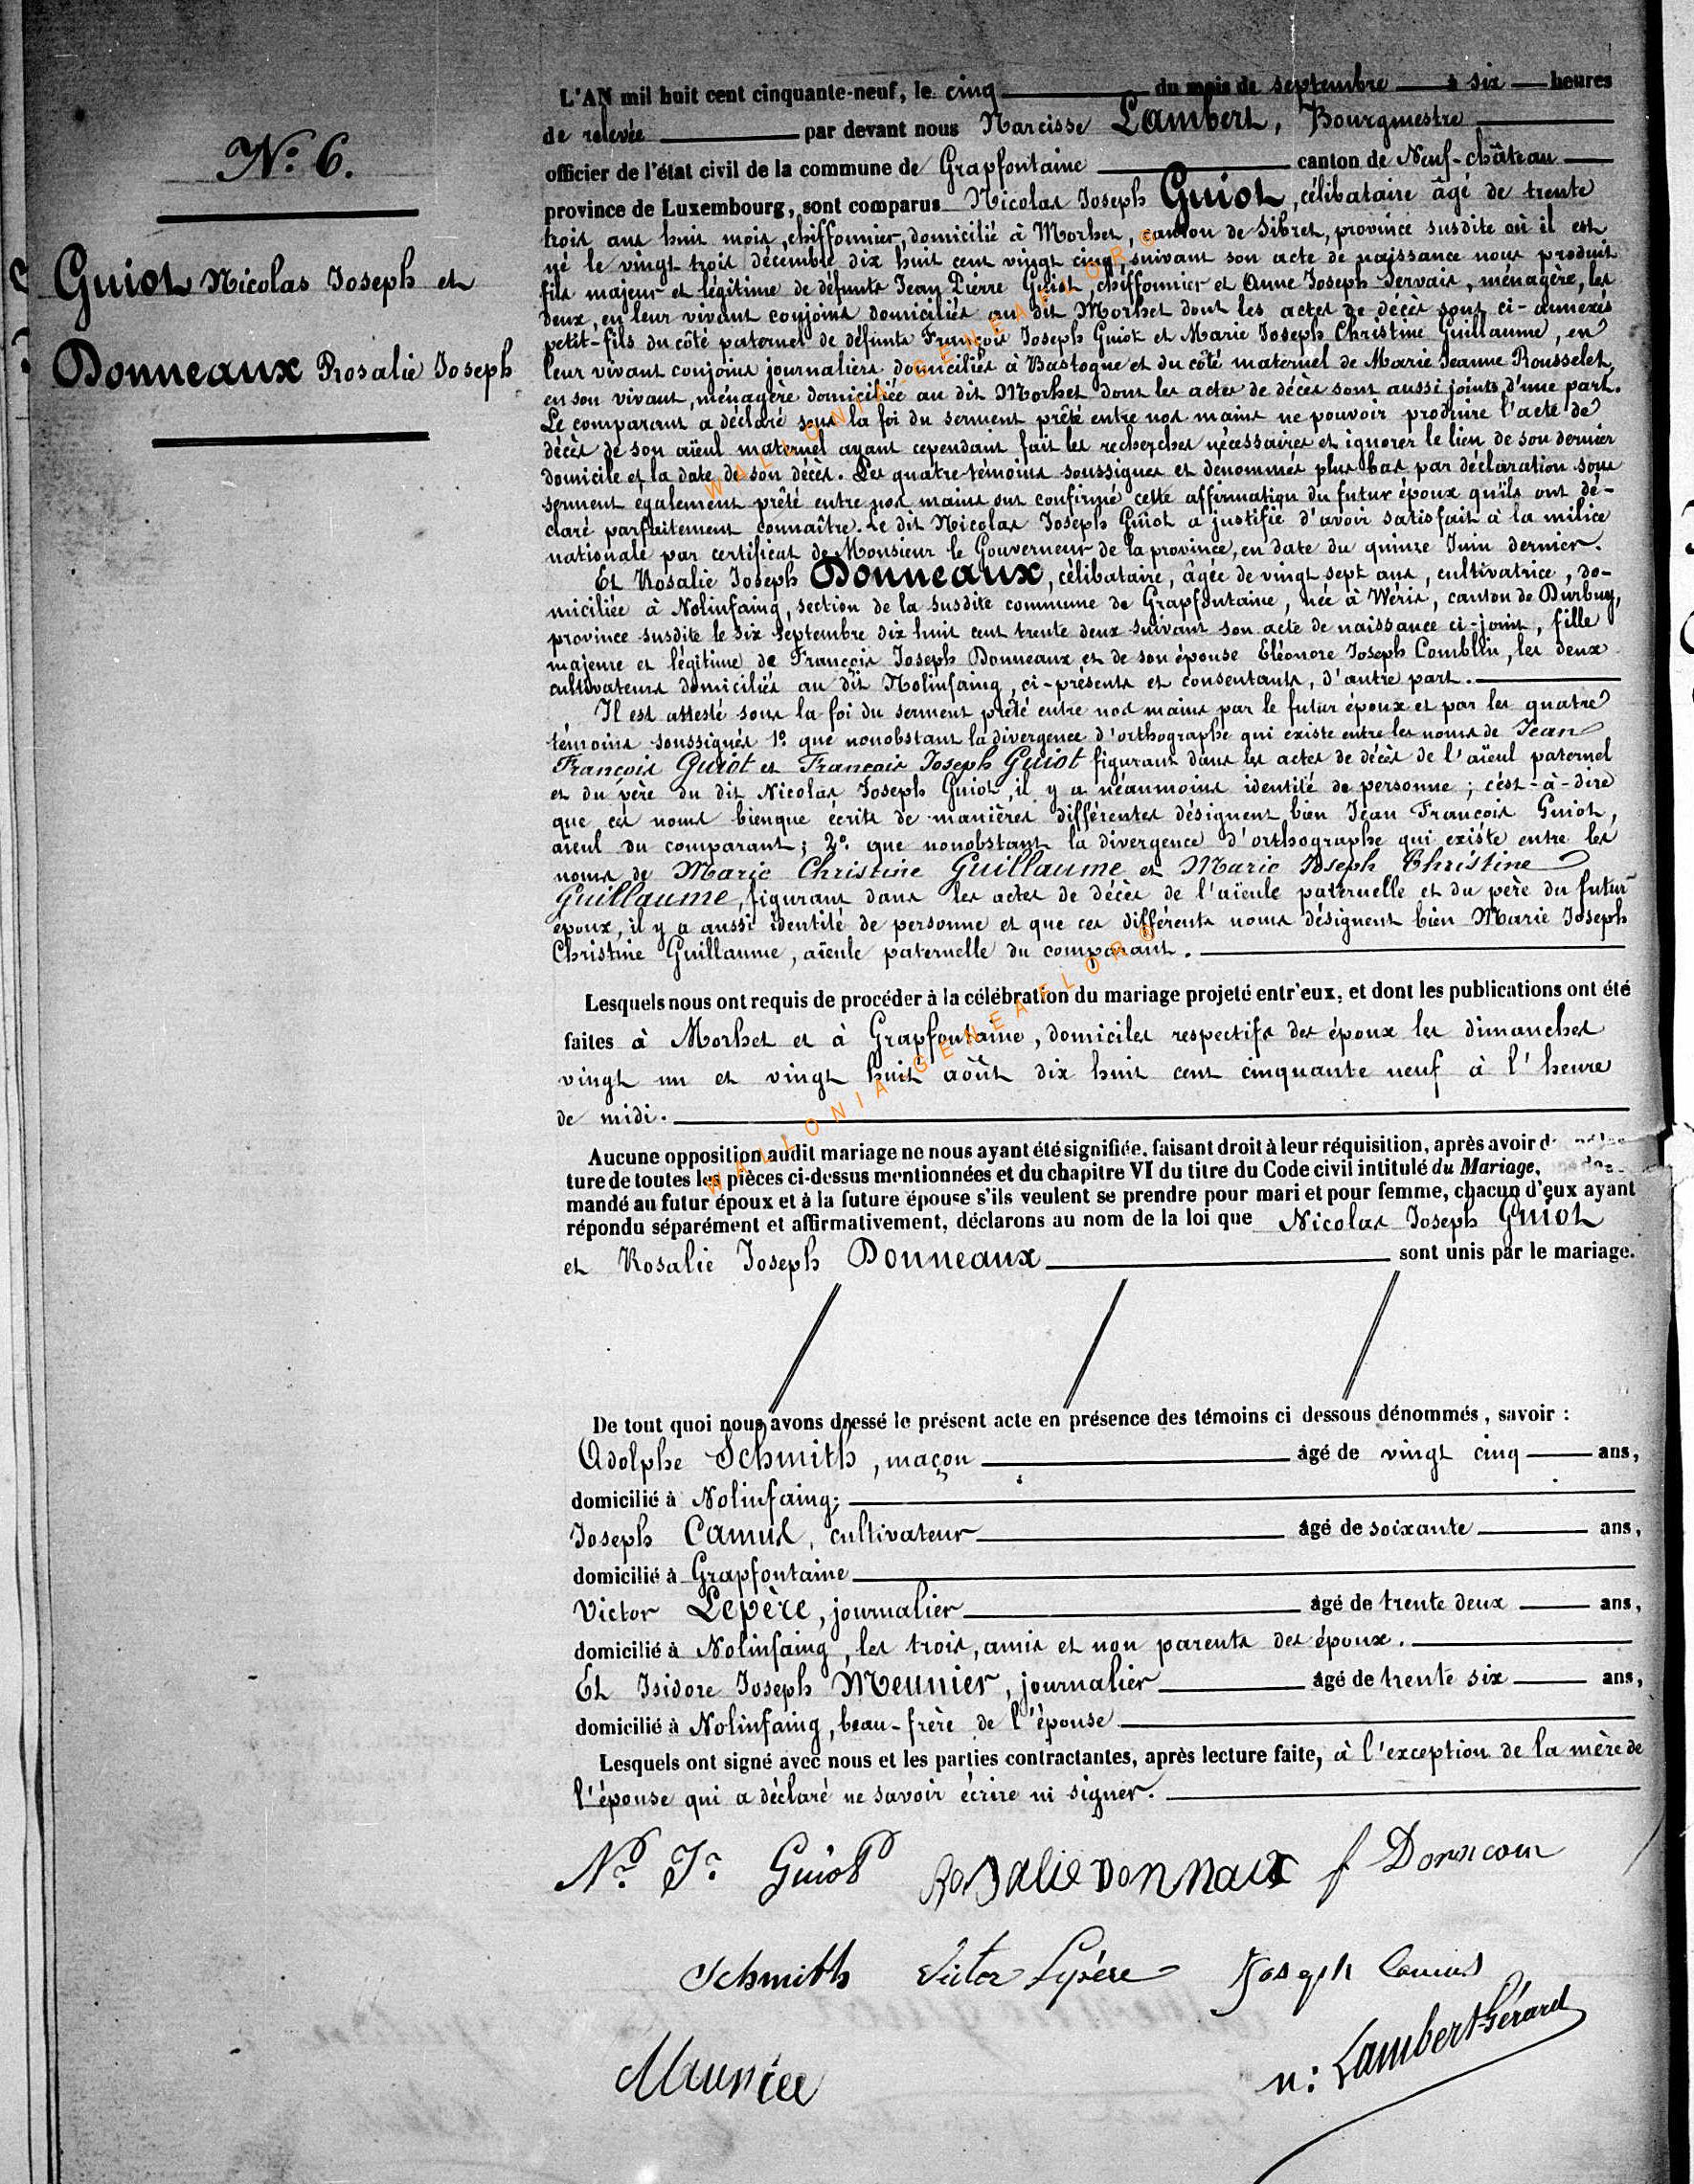 N.º 6.
Guiot Nicolas Joseph et
Donneaux Rosalie Joseph
L'AN mil huit cent cinquante-neuf, le cinq du mois de septembre à six heures
de relevée par devant nous Narcisse Lambert, Bourgmestre
officier de l'état civil de la commune de Grapfontaine canton de Neuf-château
province de Luxembourg, sont comparus Nicolas Joseph Guiot, célibataire âgé de trente
trois ans huit mois, chiffonnier, domicilié à Morhet, canton de Sibret, province susdite où il est
né le vingt trois décembre dix huit cent vingt cinq, suivant son acte de naissance nous produit
fils majeur et légitime de défunts Jean Pierre Guiot, chiffonnier et Anne Joseph Servais, ménagère, les
deux, en leur vivant conjoins domiciliés au dit Morhet dont les actes de décès sont ci-annexés
petit-fils du côté paternel de défunts François Joseph Guiot et Marie Joseph Christine Guillaume, en
leur vivant conjoins journaliers domiciliés à Bastogne et du côté maternel de Marie Jeanne Rousselet,
en son vivant, ménagère domiciliée au dit Morhet dont les actes de décès sont aussi joints d'une part.
Le comparant a déclaré sous la foi du serment prêté entre nos mains ne pouvoir produire l'acte de
décès de son aïeul maternel ayant cependant fait les recherches nécessaires et ignorer le lieu de son dernier
domicile et la date de son décès. Les quatre témoins soussignés et dénommés plus bas par déclaration sous
serment également prêté entre nos mains ont confirmé cette affirmation du futur époux qu'ils ont dé-
claré parfaitement connaître. Le dit Nicolas Joseph Guiot a justifié d'avoir satisfait à la milice
nationale par certificat de Monsieur le Gouverneur de la province, en date du quinze Juin dernier.
Et Rosalie Joseph Donneaux, célibataire, âgée de vingt sept ans, cultivatrice, do-
miciliée à Nolinfaing, section de la susdite commune de Grapfontaine, née à Wéris, canton de Durbuy,
province susdite le six Septembre dix huit cent trente deux suivant son acte de naissance ci-joint, fille
majeure et légitime de François Joseph Donneaux et de son épouse Eléonore Joseph Comblin, les deux
cultivateurs domiciliés au dit Nolinfaing, ci-présents et consentants, d'autre part.
Il est attesté sous la foi du serment prêté entre nos mains par le futur époux et par les quatre
témoins soussignés 1º que nonobstant la divergence d'orthographe qui existe entre les noms de Jean
François Guiot et François Joseph Guiot figurant dans les actes de décès de l'aïeul paternel
et du père du dit Nicolas Joseph Guiot, il y a néanmoins identité de personne ; c'est-à-dire
que ces noms bienque écrits de manières différentes désignent bien Jean François Guiot,
aïeul du comparant ; 2º que nonobstant la divergence d'orthographe qui existe entre les
noms de Marie Christine Guillaume et Marie Joseph Christine
Guillaume, figurant dans les actes de décès de l'aïeule paternelle et du père du futur
époux, il y a aussi identité de personne et que ces différents noms désignent bien Marie Joseph
Christine Guillaume, aïeule paternelle du comparant.
Lesquels nous ont requis de procéder à la célébration du mariage projeté entr'eux, et dont les publications ont été
faites à Morhet et à Grapfontaine, domiciles respectifs des époux les dimanches
vingt un et vingt huit août dix huit cent cinquante neuf à l'heure
de midi.
Aucune opposition audit mariage ne nous ayant été signifiée, faisant droit à leur réquisition, après avoir
ture de toutes les pièces ci-dessus mentionnées et du chapitre VI du titre du Code civil intitulé du Mariage,
mandé au futur époux et à la future épouse s'ils veulent se prendre pour mari et pour femme, chacun d'eux ayant
répondu séparément et affirmativement, déclarons au nom de la loi que Nicolas Joseph Guiot
et Rosalie Joseph Donneaux sont unis par le mariage.
De tout quoi nous avons dressé le présent acte en présence des témoins ci dessous dénommés, savoir :
Adolphe Schmith, maçon âgé de vingt cinq ans,
domicilié à Nolinfaing;
Joseph Camus, cultivateur âgé de soixante ans,
domicilié à Grapfontaine
Victor Lepère, journalier âgé de trente deux ans,
domicilié à Nolinfaing, les trois, amis et non parents des époux.
Et Isidore Joseph Meunier, journalier âgé de trente six ans,
domicilié à Nolinfaing, beau-frère de l'épouse
Lesquels ont signé avec nous et les parties contractantes, après lecture faite, à l'exception de la mère de
l'épouse qui a déclaré ne savoir écrire ni signer.
N.s J.h Guiot Rosalie Donnaux f
Schmith Victor Lepère Joseph Camus
n: Lambert-Gérard
WALLONIA-GENEAFLOR©
WALLONIA-GENEAFLOR©